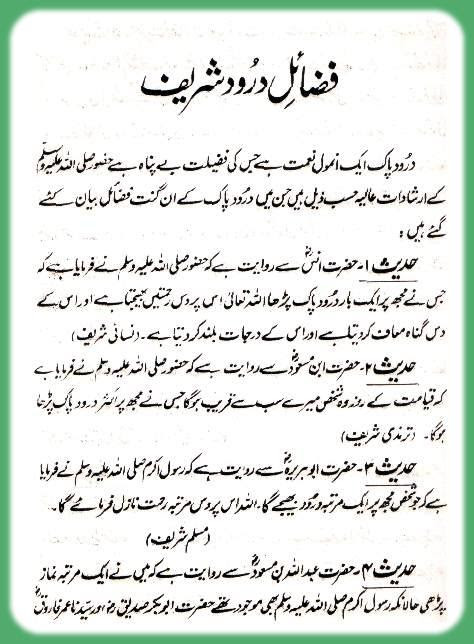 فضائلِ درُود شریف
درُود پاک ایک انمول نعمت ہے جس کی فضیلت بے پناہ ہے حضور صلی اللہ علیہ وسلم
کے ارشادات عالیہ حسب ذیل ہیں جن میں درُود پاک کے ان گنت فضائل بیان کئے
گئے ہیں :
حدیث ۱۔ حضرت انسؓ سے روایت ہے کہ حضور صلی اللہ علیہ وسلم نے فرمایا ہے کہ
جس نے مجھ پر ایک بار درُود پاک پڑھا اللہ تعالیٰ اس پر دس رحمتیں بھیجتا ہے اور اس کے
دس گناہ معاف کر دیتا ہے اور اس کے درجات بلند کر دیتا ہے۔ (نسائی شریف)
حدیث ۲۔ حضرت ابن مسعودؓ سے روایت ہے کہ حضور صلی اللہ علیہ وسلم نے فرمایا ہے
کہ قیامت کے روز وہ شخص میرے سب سے قریب ہوگا جس نے مجھ پر اکثر درود پاک پڑھا
ہوگا۔ (ترمذی شریف)
حدیث ۳۔ حضرت ابوہریرہؓ سے روایت ہے کہ رسول اکرم صلی اللہ علیہ وسلم نے فرمایا
ہے کہ جو شخص مجھ پر ایک مرتبہ درُود بھیجے گا۔ اللہ اس پر دس مرتبہ رحمت نازل فرمائے گا۔
(مسلم شریف)
حدیث ۴۔ حضرت عبداللہ بن مسعودؓ سے روایت ہے کہ میں نے ایک مرتبہ نماز
پڑھی حالانکہ رسول اکرم صلی اللہ علیہ وسلم بھی موجود تھے حضرت ابوبکر صدیقؓ اور سیّدنا عمر فاروقؓ